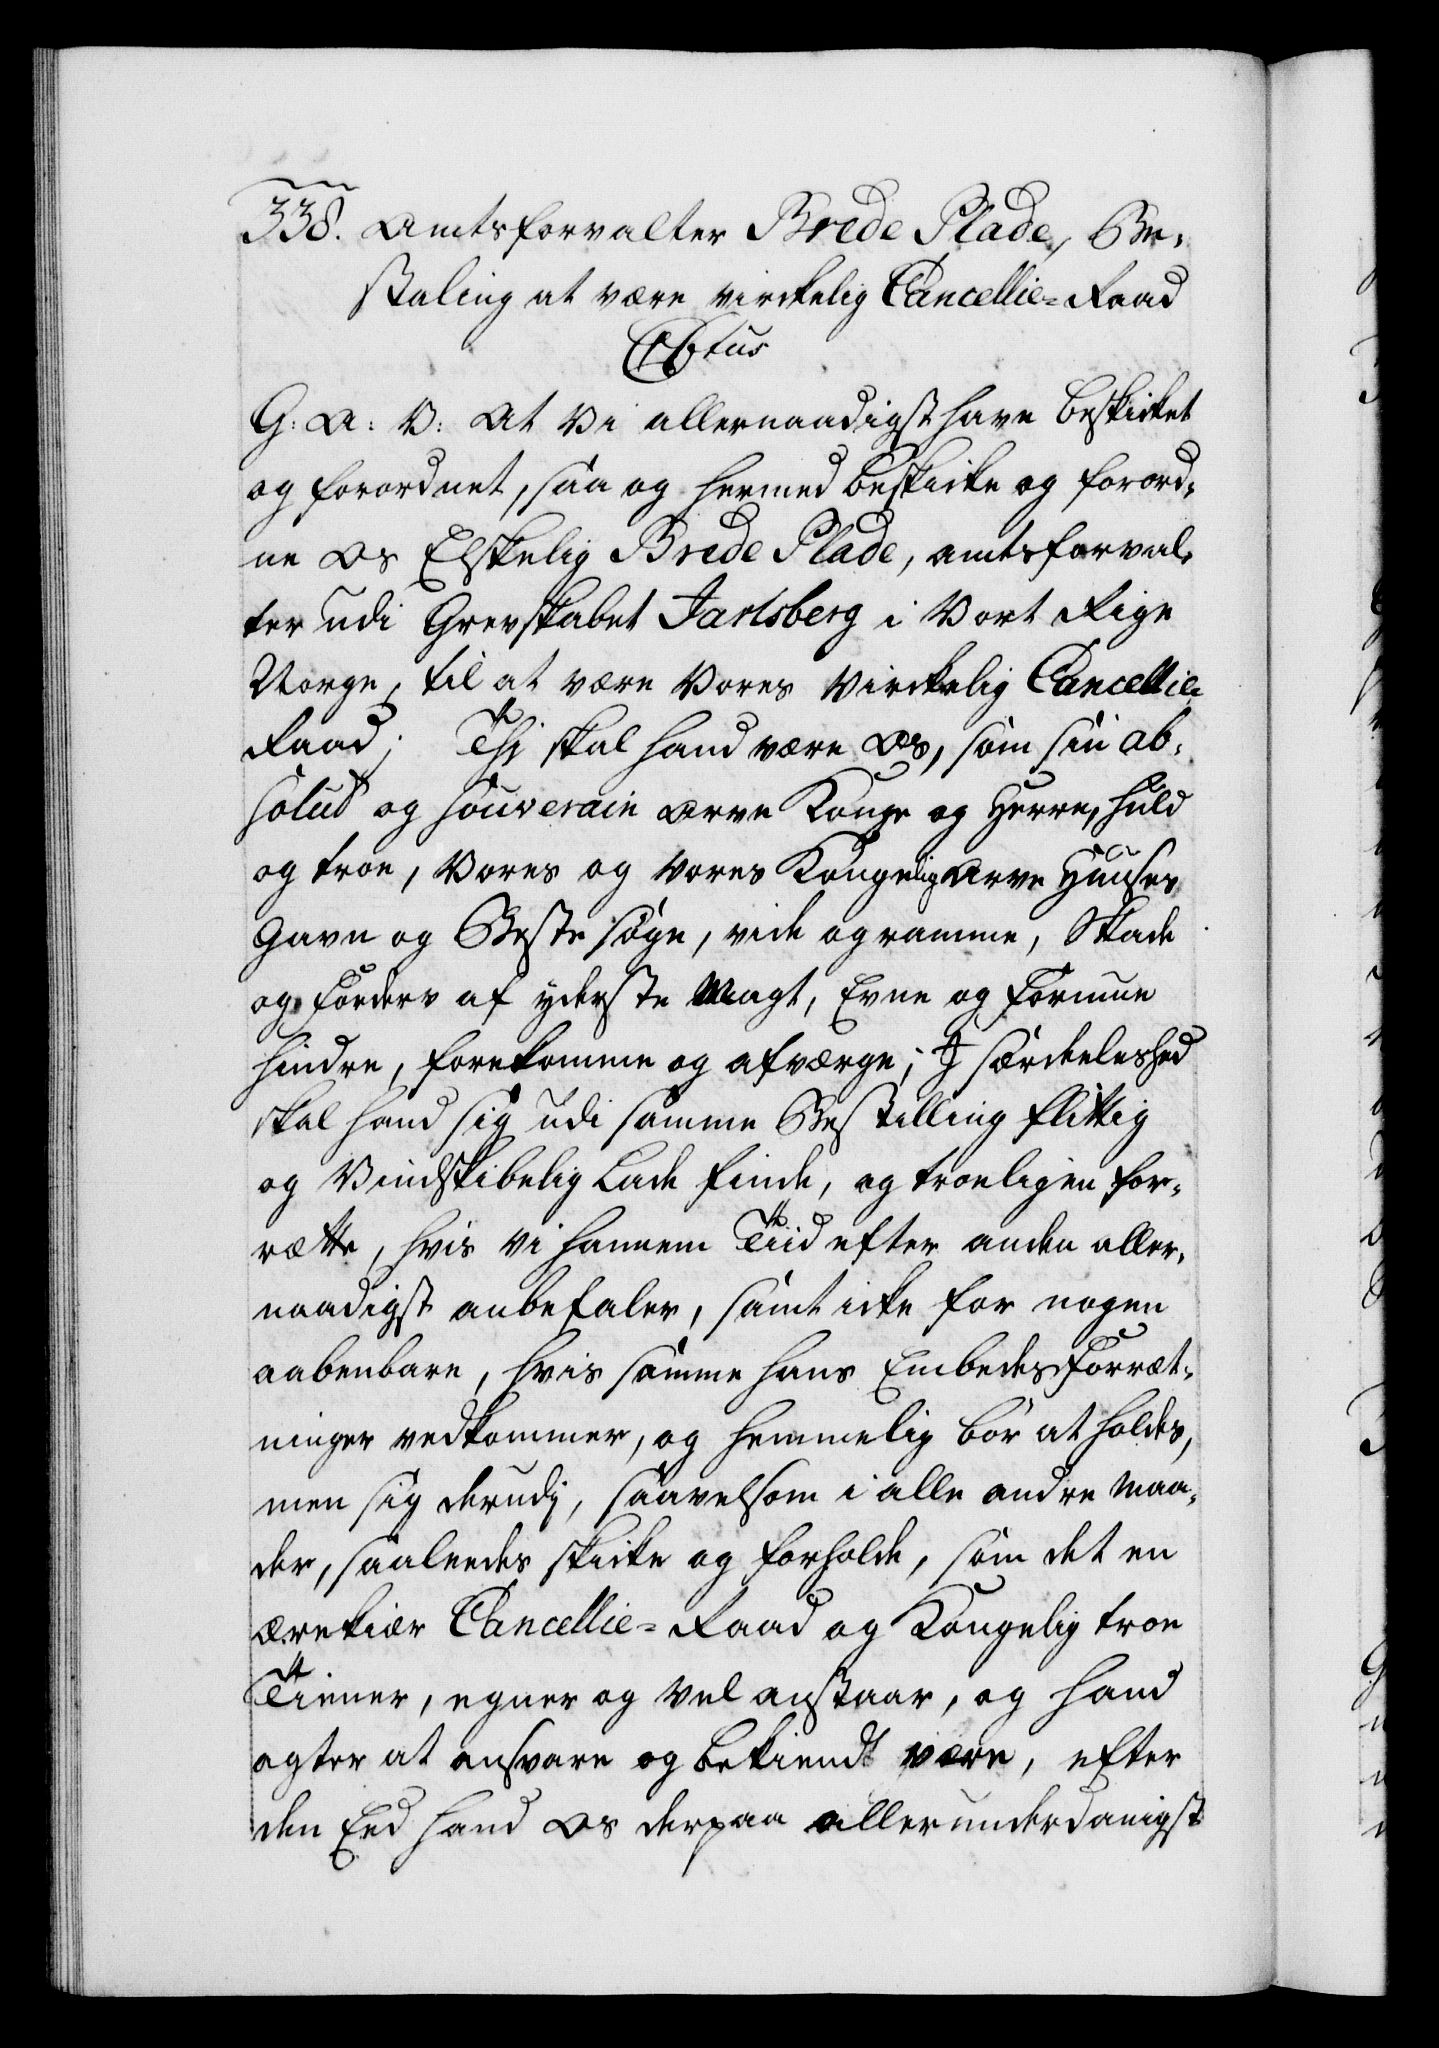 338. Amtsforvalter Brede Plade, Be-
staling at være virkelig Cancellie-Raad
C6tus
G: A: V: At Vi allernaadigst have beskicket
og forordnet, saa og hermed beskicke og forord-
ne Os Elskelig Brede Plade, amtsforval-
ter udi Grevskabet Jarlsberg i Vort Rige
Norge, til at være Vores Virckelig Cancellie-
Raad; Thj skal hand være Os, som sin ab-
solut og souverain Arve Konge og Herre, huld
og troe, Vores og Vores Kongelig Arve Huuses
Gavn og Beste søge, vide og ramme, Skade
og Forderv af yderste Magt, Evne og Formue
hindre, forekomme og afværge; J særdeleshed
skal hand sig udi samme Bestilling flittig
og Vindskibelig Lade finde, og troeligen for-
rætte, hvis Vi hannem Tiid efter anden aller-
naadigst anbefaler, samt icke for nogen
aabenbare, hvis samme hans Embedes Forræt-
ninger vedkommer, og hemmelig bør at holdes,
men sig derudj, saavelsom i alle andre Maa-
der, saaleedes skicke og forholde, som det en
ærekiær Cancellie-Raad og Kongelig troe
Tiener, egner og vel anstaar, og hand
agter at ansvare og bekiendt være, efter
den Eed hand Os derpaa allerunderdanigst